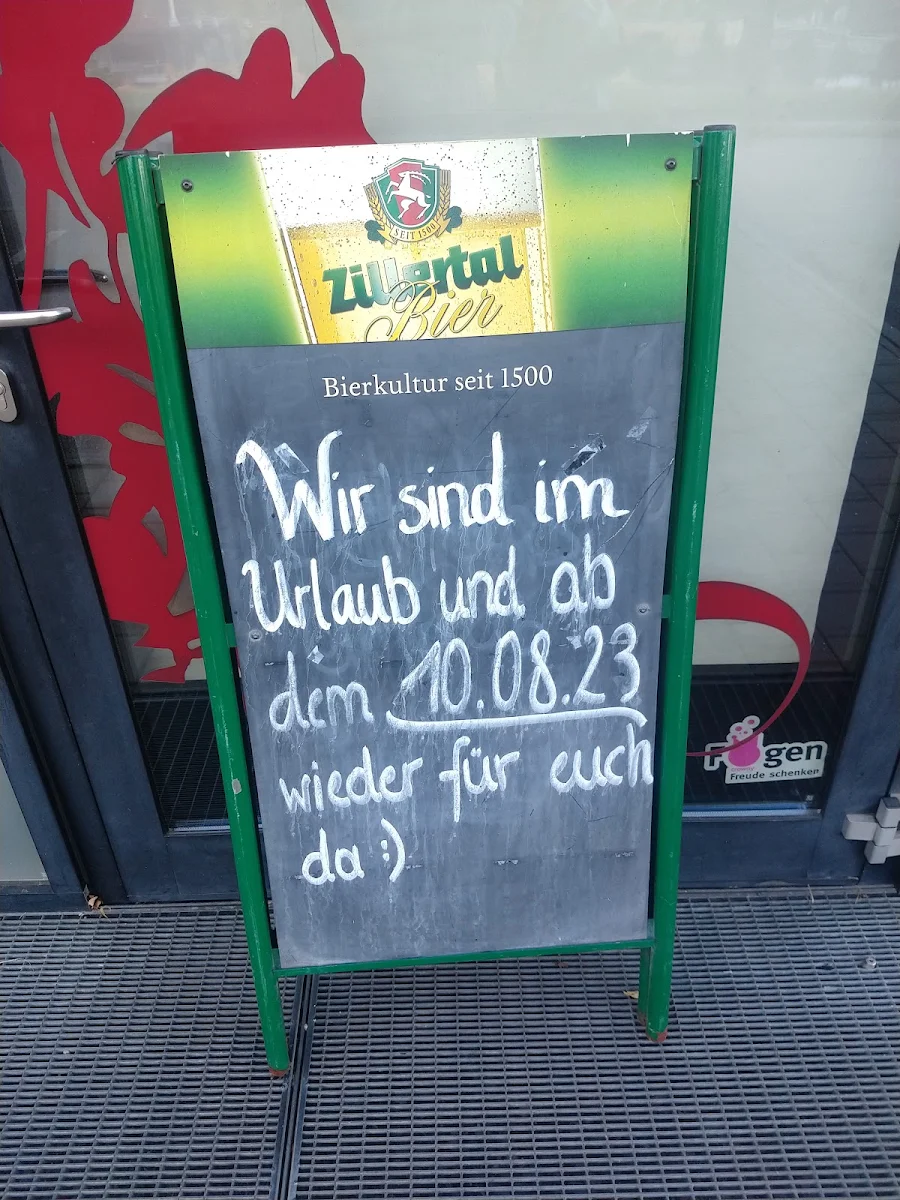 SEIT 1500
Zillertal
Bier
Bierkultur seit 1500
Wir sind im
Urlaub und ab
dem 10.08.23
wieder für euch
da :)
Freude schenken